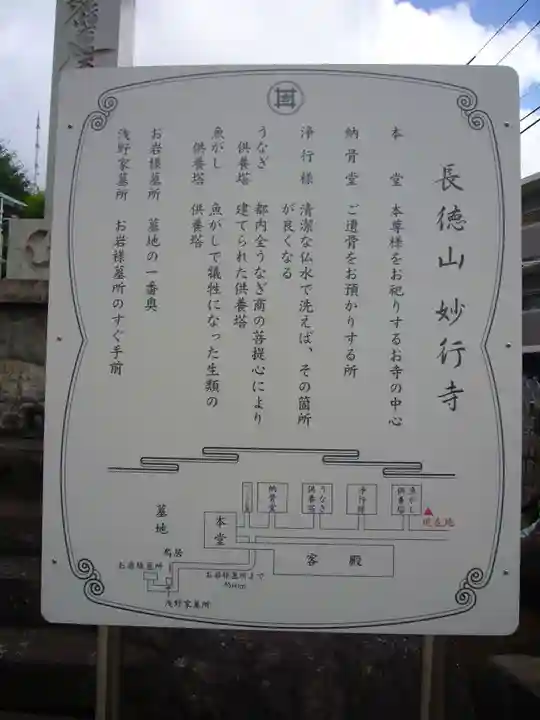 長徳山 妙行寺
本堂 本尊様をお祀りするお寺の中心
納骨堂 ご遺骨をお預かりする所
浄行様 清潔な仏水で洗えば、その箇所
が良くなる
うなぎ 都内全うなぎ商の菩提心により
供養塔 建てられた供養塔
魚がし 魚がしで犠牲になった生類の
供養塔 供養塔
お岩様墓所 墓地の一番奥
浅野家墓所 お岩様墓所のすぐ手前
納骨堂
うなぎ
供養塔
浄行様
魚がし
供養塔
現在地
墓地
本堂
客殿
鳥居
お岩様墓所
お岩様墓所まで
浅野家墓所